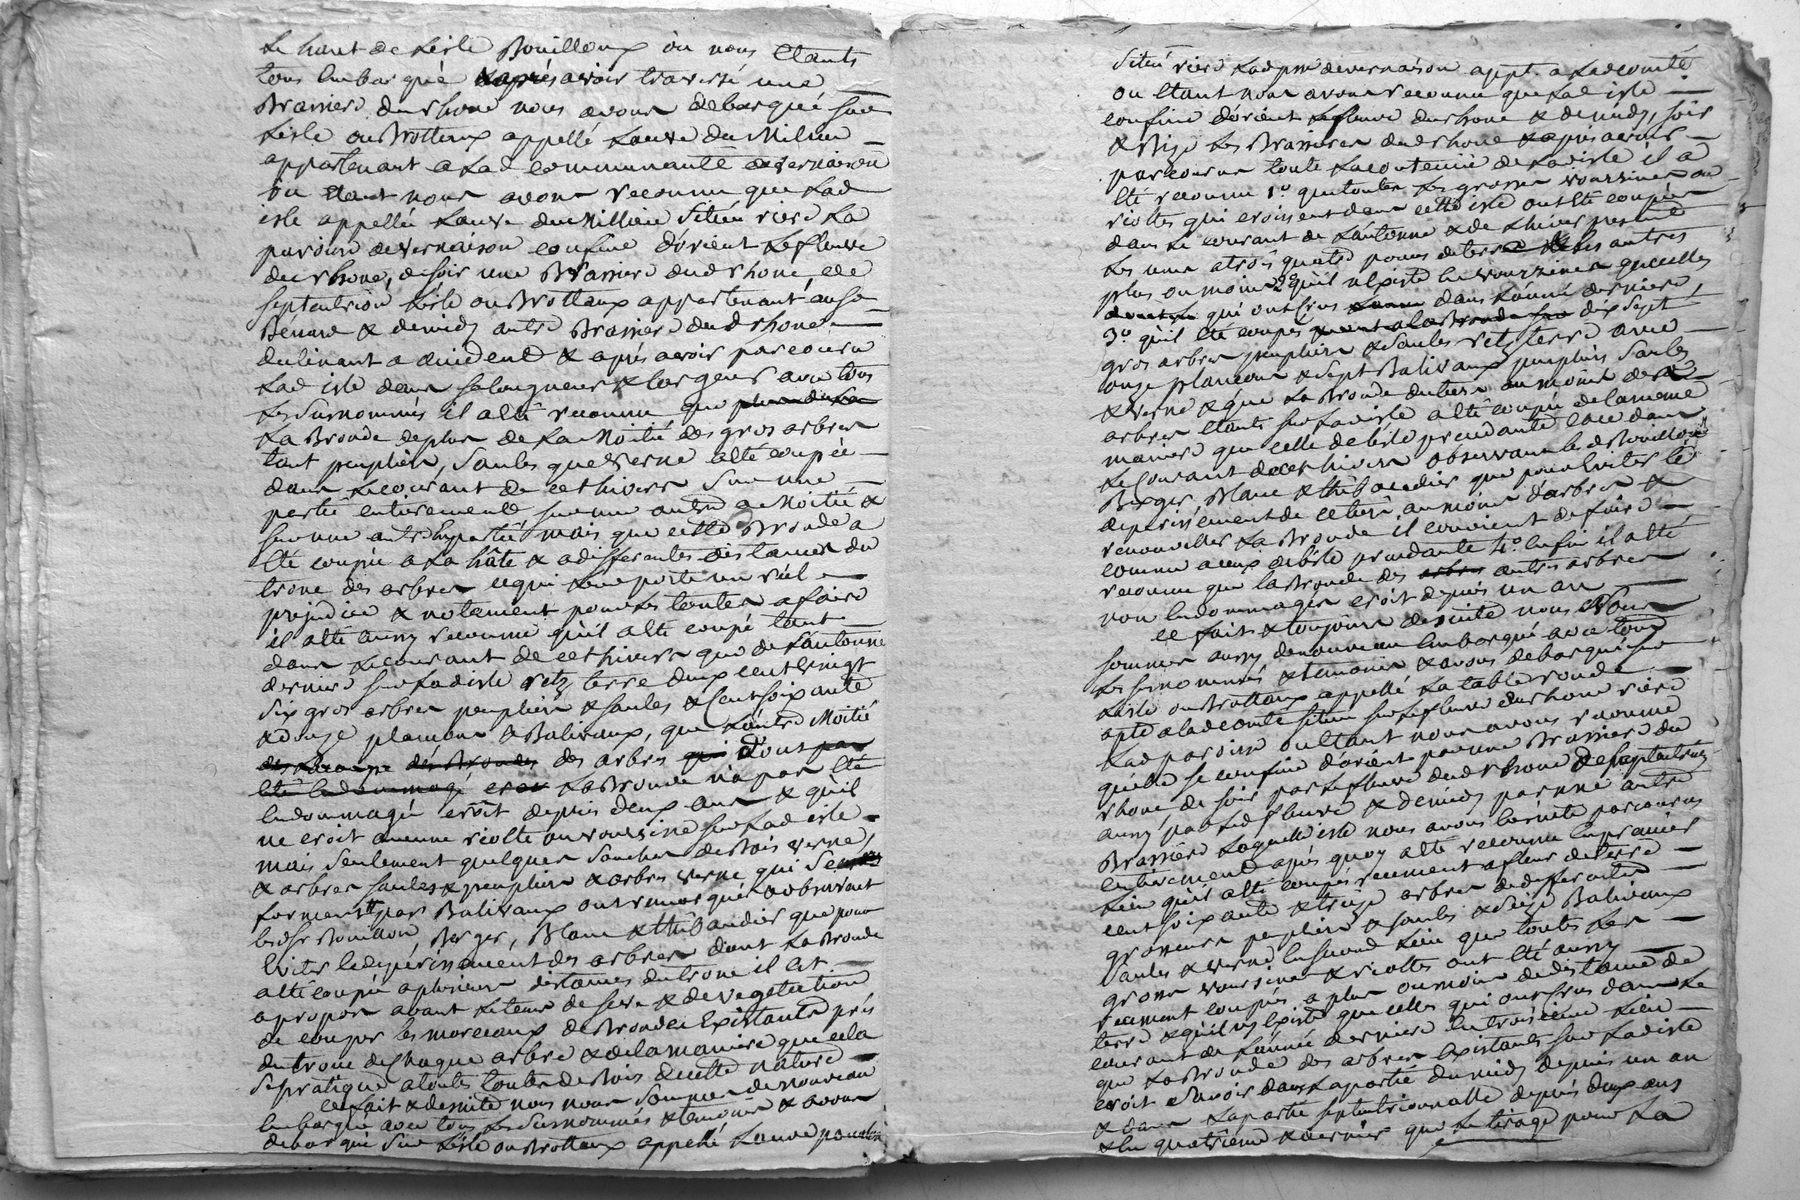 Le haut de Lisle Bouilloux ou nous Etants
tous Embarqué & après avoir traversé une
Brassiere du rhone nous avons debarqué sur
Lisle ou Brottaux appellé Lauve du Millieu
appartenant a Lad communauté de vernaison
ou Etant nous avons reconnu que Lad
isle appellée Lauve du Millieu Située riere La
paroisse de vernaison confine d'orient Le fleuve
du rhone, de soir une Brassiere dud rhone, de
septentrion Lisle ou Brottaux appartenant au Sr
Benard & de midy autre Brassiere dud rhone
declinant a occident & après avoir parcouru
Lad isle dans sa longueur & largeur avec tous
Les Surnommés il a été reconnu que
La Bronde de plus de La Moitié des gros arbres
tant peupliers, Saules que Verne a été coupée
dans Le courant de cet hivers Sur une
partie entierement sur une autre a Moitié &
sur une autre partie mais que cette Bronde a
Eté coupée a La hâte & a differentes distances du
tronc des arbres ce qui Leur porte un réel
prejudice & notament pour Les toutes a faire
il a été aussy reconnu qu'il a été coupé tant
dans Le courant de cet hivers que de Lautonne
dernier sur Lad isle retz terre deux cent vingt
Six gros arbres peupliers & saules & Cent soixante
& douze plancons & Balivaux, que Lautre Moitié
des arbres dont
La Bronde n'a pas Eté
Endommagé croît depuis deux ans & qu'il
ne croit aucune riolte ou voursine sur Lad isle
mais Seulement quelques Souches de Bois verne
& arbres saules & peupliers & arbres verne qui
forment pas Balivaux ont remarqué & observant
Lesd Srs Bouillon, Berger, Blanc & thibaudier que pour
Eviter le deperissement des arbres dont La Bronde
a été coupée a plusieurs distances du tronc il est
a propos avant Le tems de seve & de vegetation
de couper les morceaux de Bronde Existants prés
du tronc de chaque arbre & de la maniere que cela
Se pratique a toutes toutes de Bois de cette nature
ce fait & de suite nous nous Sommes de nouveau
Embarqué avec tous Les Surnommés & temoins & avons
debarqué Sur Lisle ou Brottaux appellé Lauve
Située riere Lad psse de vernaison appt. a Lad comté
ou Etant nous avons reconnu que Lad isle
confine d'orient Le fleuve du rhone & de midy, soir
& Bize Les Brassieres dud rhone & après avoir
parcouru toute La contenue de Lad isle il a
Eté reconnu 1º que toutes Les grosses voursines ou
rioltes qui croissent dans cette isle ont Eté coupées
dans Le courant de Lautonne & de Lhiver present
Les unes a trois quatre pouces de terre & Les autres
plus ou moins 2º qu'il n'existe En voursines que celles
qui ont Crus dans Lannée derniere
3º qu'il Eté coupé dix Sept
gros arbres peupliers & Saules retz terre avec
onze plancons & Sept Balivaux peupliers Saules
& verne & que La Bronde du tiers au moins des
arbres Etants sur Lad isle a été coupée de la meme
maniere que celle de Lisle precedante Et ce dans
Le Courant de cet hivers observants Lesd Bouillon
Berger, Blanc & thibaudier que pour Eviter Le
deperissement de ce tiers au moins d'arbres &
renouveller La Bronde il convient de faire
comme a ceux de Lisle precedante 4º. Enfin il a été
reconnu que la Bronde des autres arbres
non Endommagés croit depuis un an
ce fait & toujours de suite nous Nous
sommes aussy de nouveau Embarqué avec tous
Les surnommés & temoins & avons debarqué sur
Lisle ou Brottaux appellé La table ronde
apte a lad comté située sur Le fleuve du rhone riere
Lad paroisse ou Etant nous avons reconnu
quelle se confine d'orient par une Brassiere du
rhone de soir par Le fleuve dud rhone de septentrion
aussy par Led fleuve & de midy par une autre
Brassiere Laquelle isle nous avons Ensuite parcourus
entierement après quoy a été reconnu En premier
Lieu qu'il a été coupés recement a fleur de terre
cent soixante & treize arbres de differentes
grosseurs peupliers & saules & seize Balivaux
saules & verne En second Lieu que toutes Les
grosses voursines & rioltes ont Eté aussy
recement coupés a plus ou moins de distance de
terre & qu'il n'y Existe que celles qui ont Crus dans Le
courant de Lannée derniere En troisieme Lieu
que La Bronde des arbres Existants sur Lad isle
croit Savoir dans La partie du midy depuis un an
& dans La partie septentrionalle depuis deux ans
& En quatrieme & dernier que Le tirage pour La